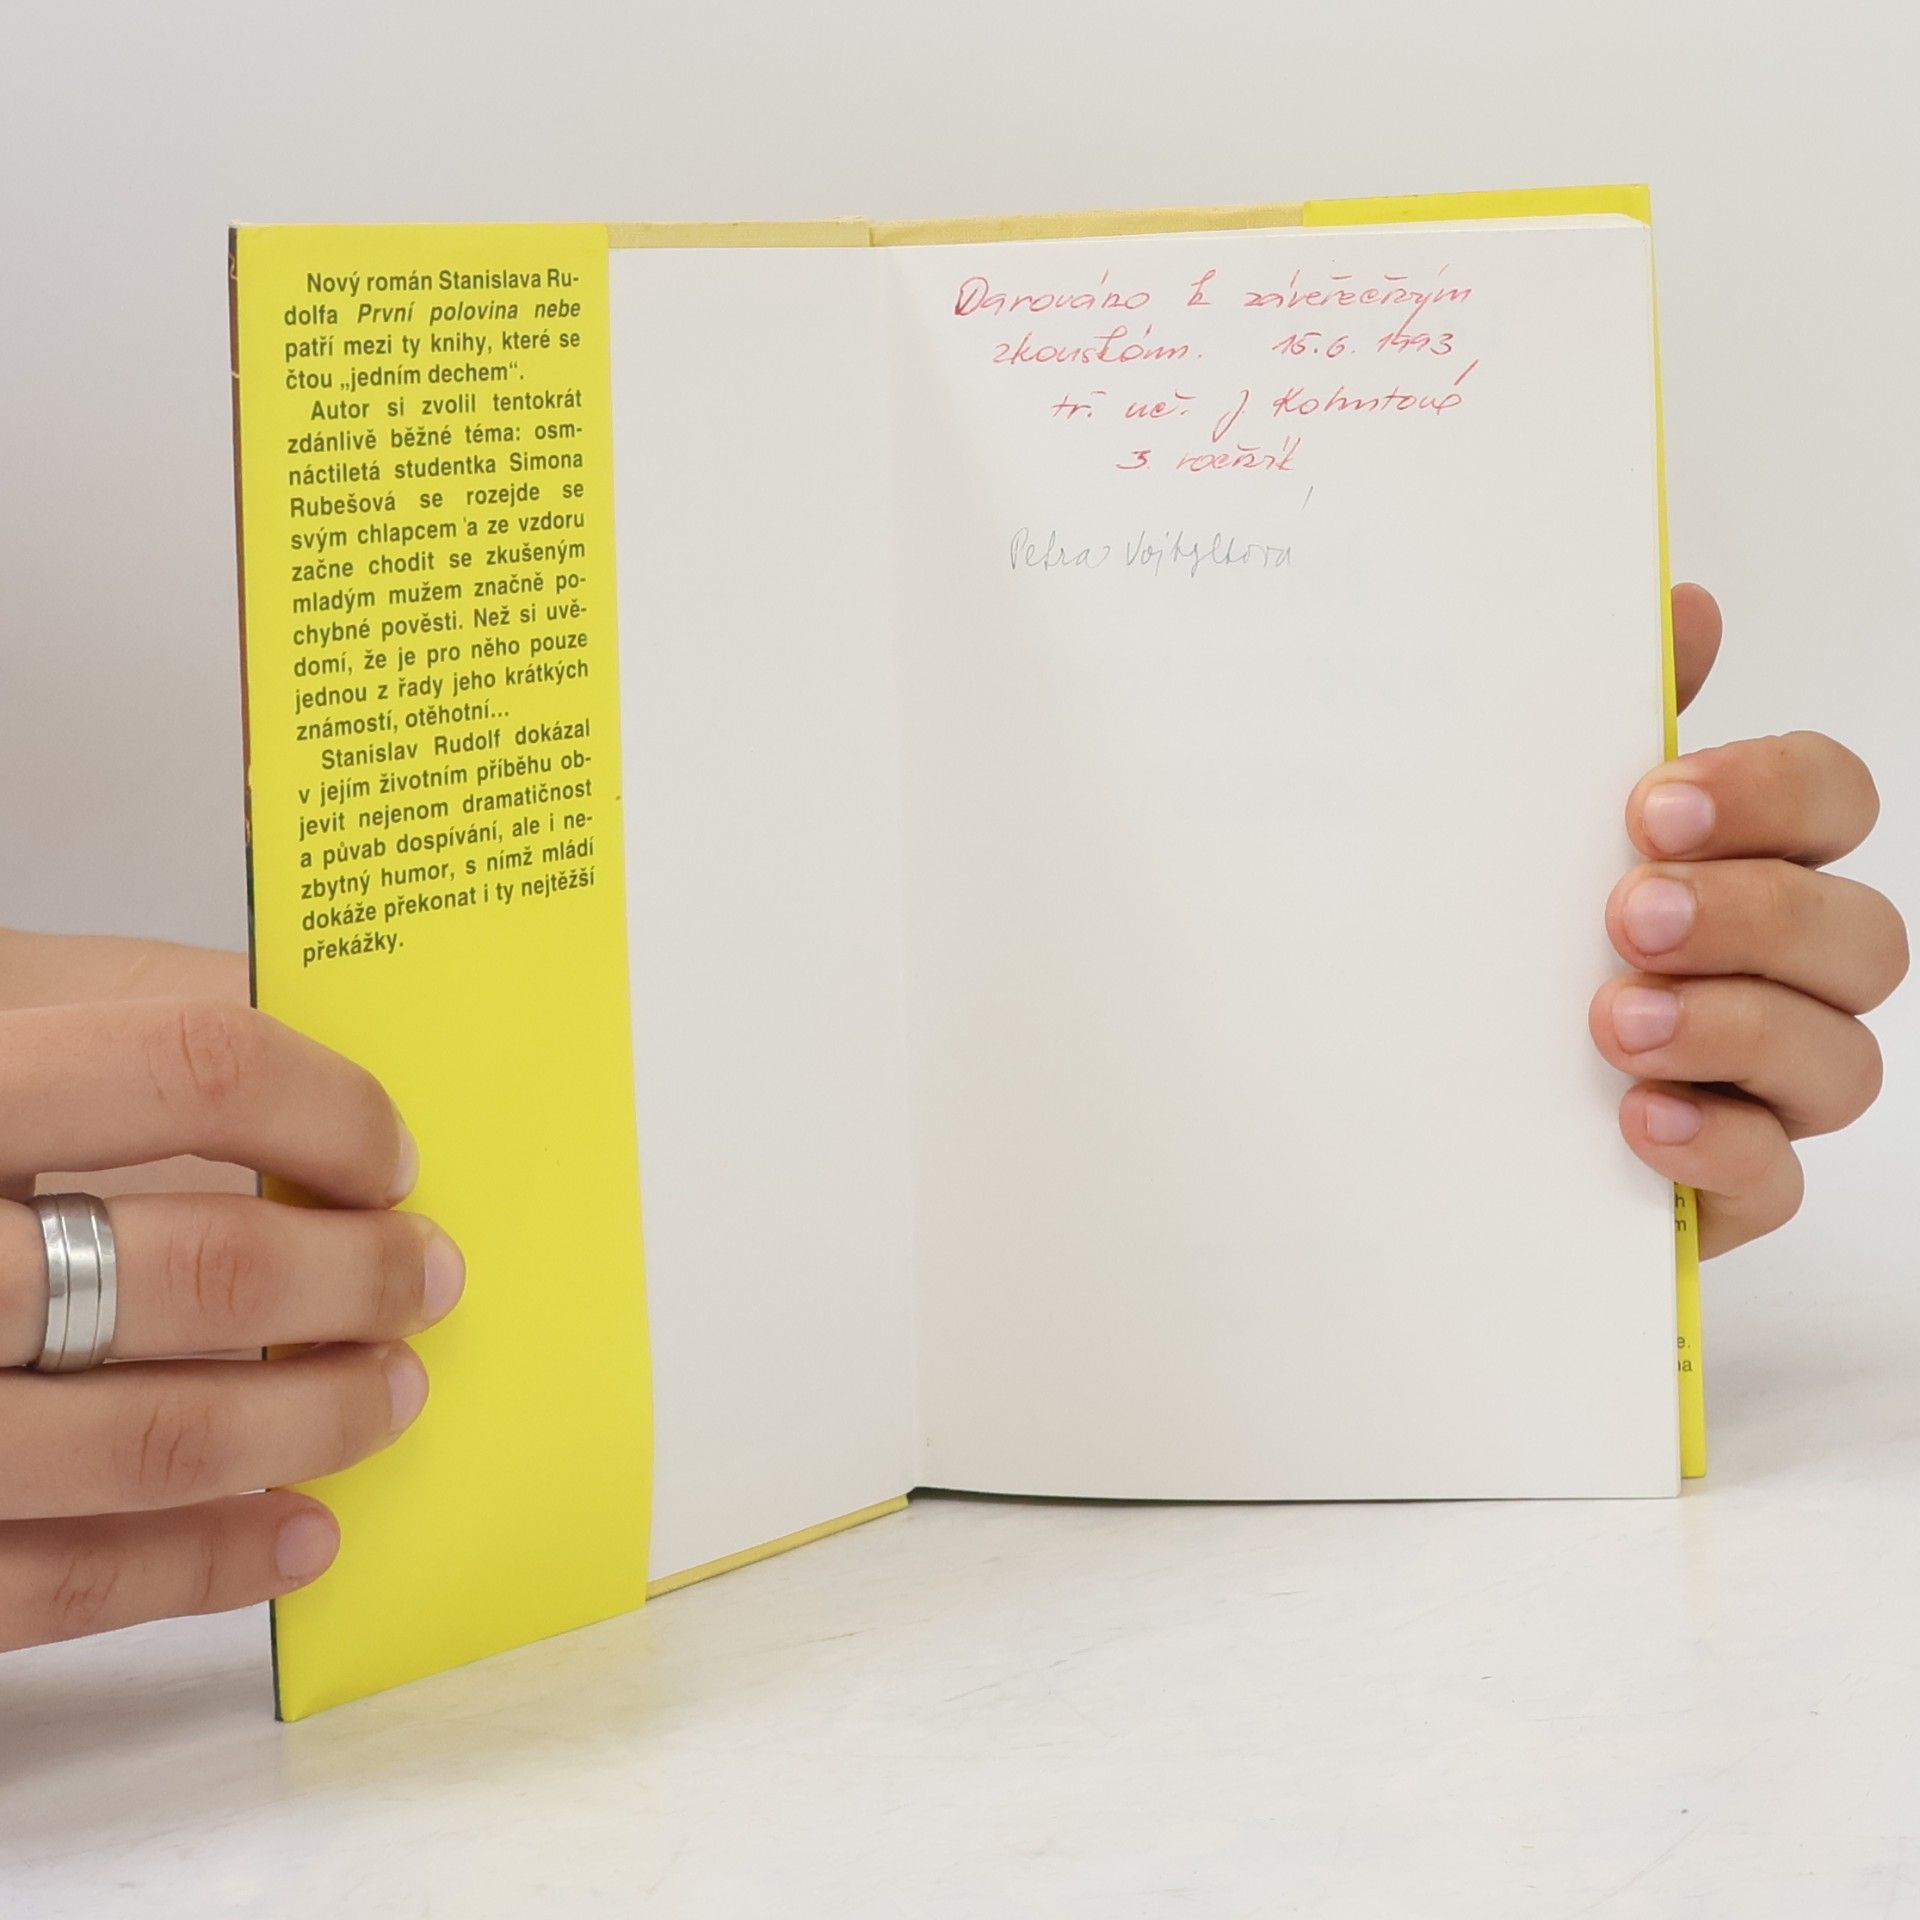 Nový román Stanislava Ru-
dolfa První polovina nebe
patří mezi ty knihy, které se
čtou „jedním dechem“.
Autor si zvolil tentokrát
zdánlivě běžné téma: osm-
náctiletá studentka Simona
Rubešová se rozejde se
svým chlapcem a ze vzdoru
začne chodit se zkušeným
mladým mužem značně po-
chybné pověsti. Než si uvě-
domí, že je pro něho pouze
jednou z řady jeho krátkých
známostí, otěhotní...
Stanislav Rudolf dokázal
v jejím životním příběhu ob-
jevit nejenom dramatičnost
a půvab dospívání, ale i ne-
zbytný humor, s nímž mládí
dokáže překonat i ty nejtěžší
překážky.
Darováno k závěrečným
zkouškám. 15. 6. 1993
tř. uč. J. Kohutové
3. ročník
Petra
h
m
e.
na